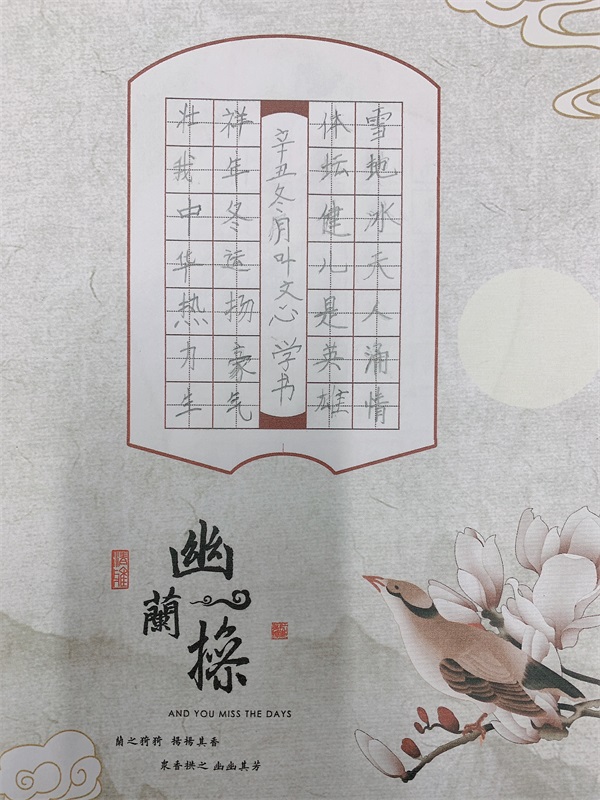 雪地冰天人涌情
体坛健儿是英雄
辛丑冬月叶文心学书
祥年冬运扬豪气
壮我中华热力生
幽蘭操
AND YOU MISS THE DAYS
蘭之猗猗 揚揚其香
眾香拱之 幽幽其芳